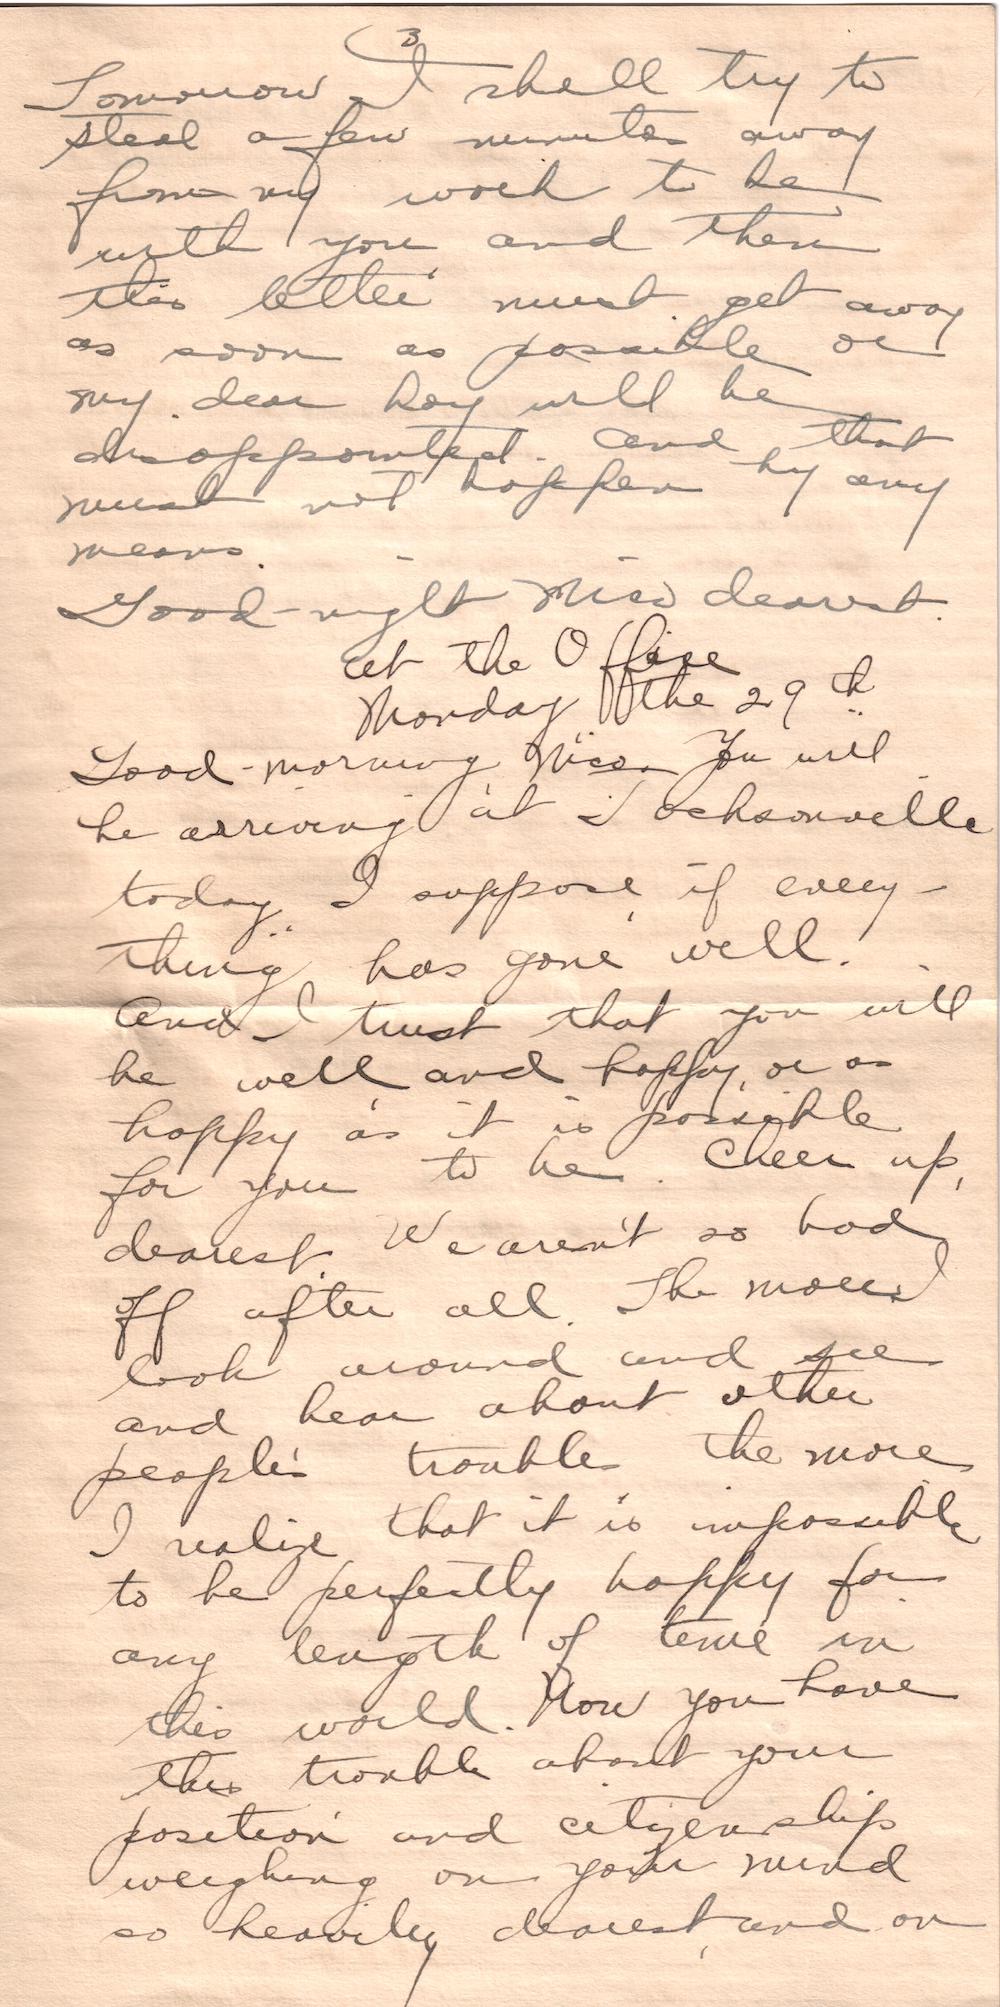 3
Tomorrow I shall try to
steal a few minutes away
from my work to be
with you and then
this letter must get away
as soon as possible or
my dear boy will be
disappointed. and that
must not happen by any
means.
Good-night Nico dearest.
at the Office
Monday the 29th
Good-morning Nico. You will
be arriving at Jacksonville
today, I suppose, if every-
thing has gone well.
And I trust that you will
be well and happy, or as
happy as it is possible
for you to be. Cheer up,
dearest. We aren't so bad
off after all. The more I
look around and see
and hear about other
people's trouble the more
I realize that it is impossible
to be perfectly happy for
any length of time in
this world. Now you have
this trouble about your
position and citizenship
weighing on your mind
so heavily dearest, and on